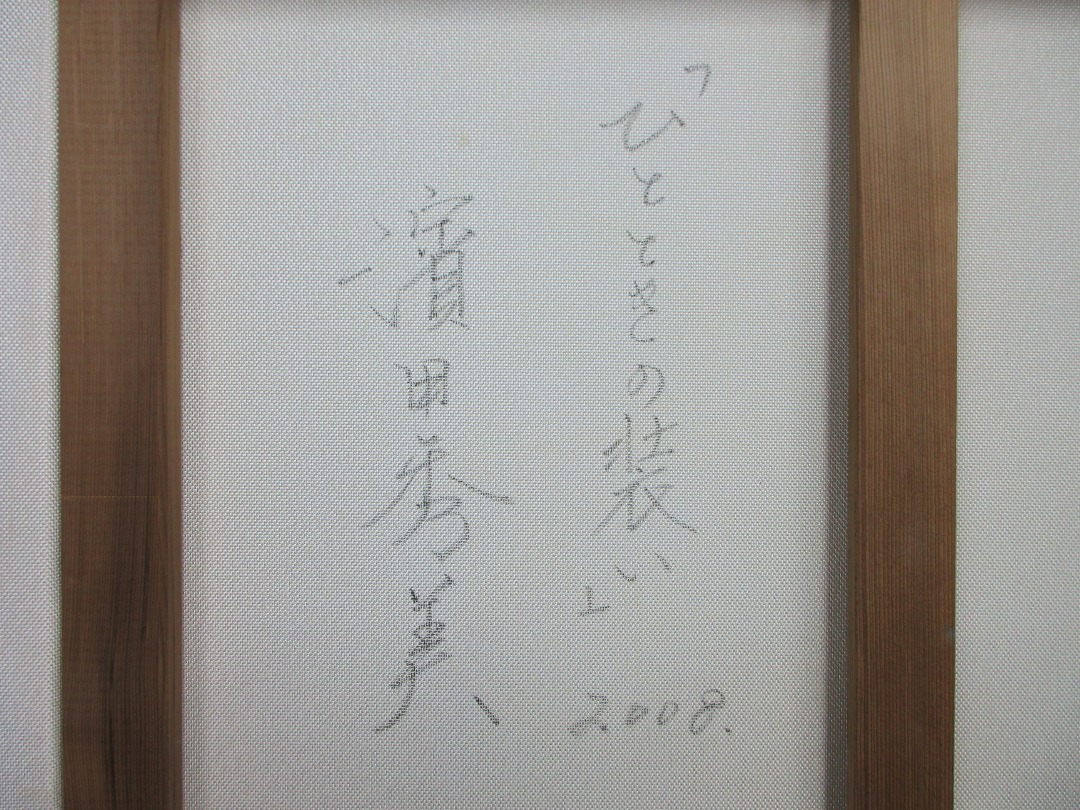 「ひとときの装い」
2008.
濱田秀美